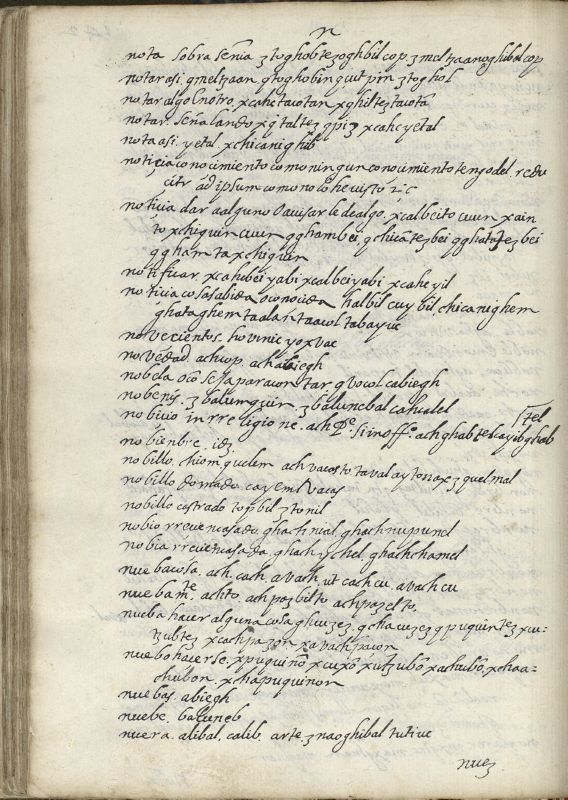 n
nota sobra señia ꜫ toghobtezoghbil cop ꜫ meltzaanoghibal cop
notar asi. qmeltzaan qtoghobin qut pin ꜫ toghol
notar algo l notro, xcahctaiotan xqhiltez taiotã
notar señalando x ꜫ
nota asi. yetal. xchicanighib
noticia conocimiento como ningun conocimiento tengo del. redu
citr ad ipsum como no lo he visto &c
noticia dar a alguno o auisar le de algo. xcalbeito cuun xain
to xchiquin cuun qghambei, qchicãtez bei qghatatez bei
qgham ta xchiquin
notificar. xcahubei yabi xcalbei yabi xcaheyil
noticia cosa sabida o conocida halbil cuybil, chicanighem
ghataghem taalan taacol tabayuc
novecientos. hovinic yoxvac
novedad. achcop. achabiegh
nobela o cõseja para contar qvocol cabiegh
nobenꝭ. ꜫ balunquin. ꜫ balunebal cahulel
nobicio in rreligione. ach Pe. si in offo. ach ghabtel cayibghab
tel
nobienbre. idꝫ
nobillo. chiom quelem ach vacosto taval aytonax ꜫ quelmal
nobillo domado. cayeml vacas
nobillo castrado topbil ꜫ tonil
nobio rreciencasado, ghach nial, ghach nupunel
nobia rreciencasada. ghach ychel, ghachchamel
nueba cosa. ach, cach, avach, ut cach cu. avach cu
nueba mte. achto. ach pazbilto achpazelto,
nueba hacer alguna cosa q licuzez. qchacuzez q puquintez xcu-
tzubtez xcachpazon xavachpacon
nuebo hacerse. xpuquinõ xcuxõ xutzubõ xachubõ. xchaa-
chubon. xchapuquinon
nuebas. abiegh
nuebe. baluneb
nuera. alibal, calib. arte. ꜫ naoghibal tutiuc
nuez